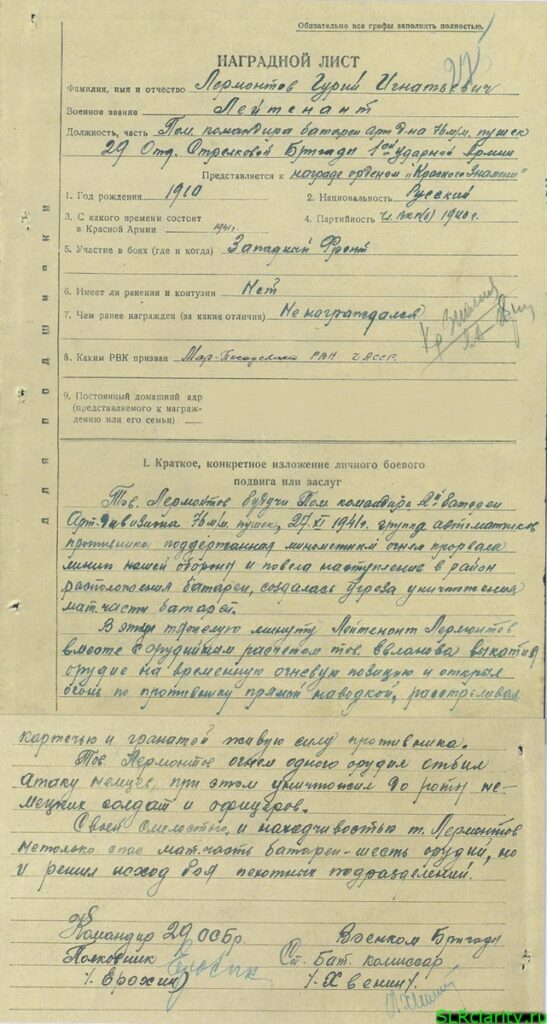 Обязательно все графы заполнить полностью.
НАГРАДНОЙ ЛИСТ
Фамилия, имя и отчество Лермонтов Гурий Игнатьевич
Военное звание Лейтенант
Должность, часть Пом. командира батареи Арт. д-на 76 м/м. пушек
29 Отд. Стрелковой Бригады 1ой Ударной Армии
Представляется к награде орденом "Красного Знамени"
1. Год рождения 1910 2. Национальность Русский
3. С какого времени состоит
в Красной Армии 1941г. 4. Партийность чл ВКП(б) 1940г.
5. Участие в боях (где и когда) Западный Фронт
6. Имеет ли ранения и контузии Нет
7. Чем ранее награжден (за какие отличия) Не награждался
Кр. Знамя
8. Каким РВК призван Мар-Посадским РВК ЧАССР.
9. Постоянный домашний адр
(представляемого к награж-
дению или его семьи)
Для подшивки
I. Краткое, конкретное изложение личного боевого
подвига или заслуг
Тов. Лермонтов будучи Пом командира 2й батареи
Арт. дивизиона 76 м/м. пушек, 27.XI 1941г. группа автоматчиков
противника поддержанная минометным огнем прорвала
линию нашей обороны и повела наступление в район
расположения батареи, создалась угроза уничтожения
мат. части батареи.
В эту тяжелую минуту Лейтенант Лермонтов
вместе с орудийным расчетом тов. выкатив
орудие на временную огневую позицию и открыл
огонь по противнику прямой наводкой, расстреливая
картечью и гранатой живую силу противника.
Тов. Лермонтов огнем одного орудия отбил
атаку немцев, при этом уничтожил до роты не-
мецких солдат и офицеров.
Своей смелостью и находчивостью т. Лермонтов
нетолько спас мат. часть батареи - шесть орудий, но
и решил исход боя пехотных подразделений.
Командир 29 ОСБр. Военком Бригады
Полковник Ст. Бат. комиссар
/. Ерохин/ /. Хвенин/.
SLRclarity.ru